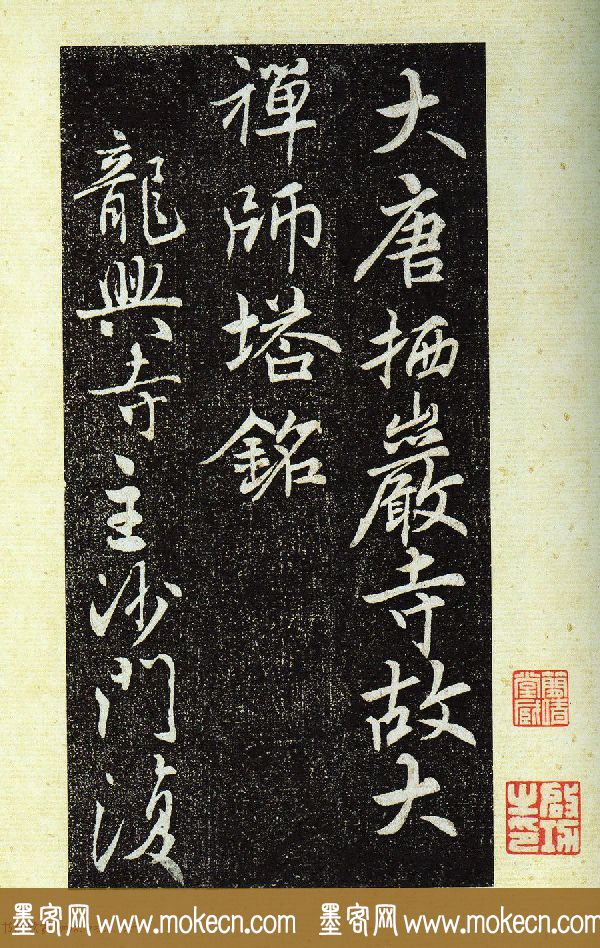 大唐栖巖寺故大
禪師塔銘
龍興寺主沙門復
啟功之印
墨客网 www.mokecn.com 墨客网 www.mokecn.com